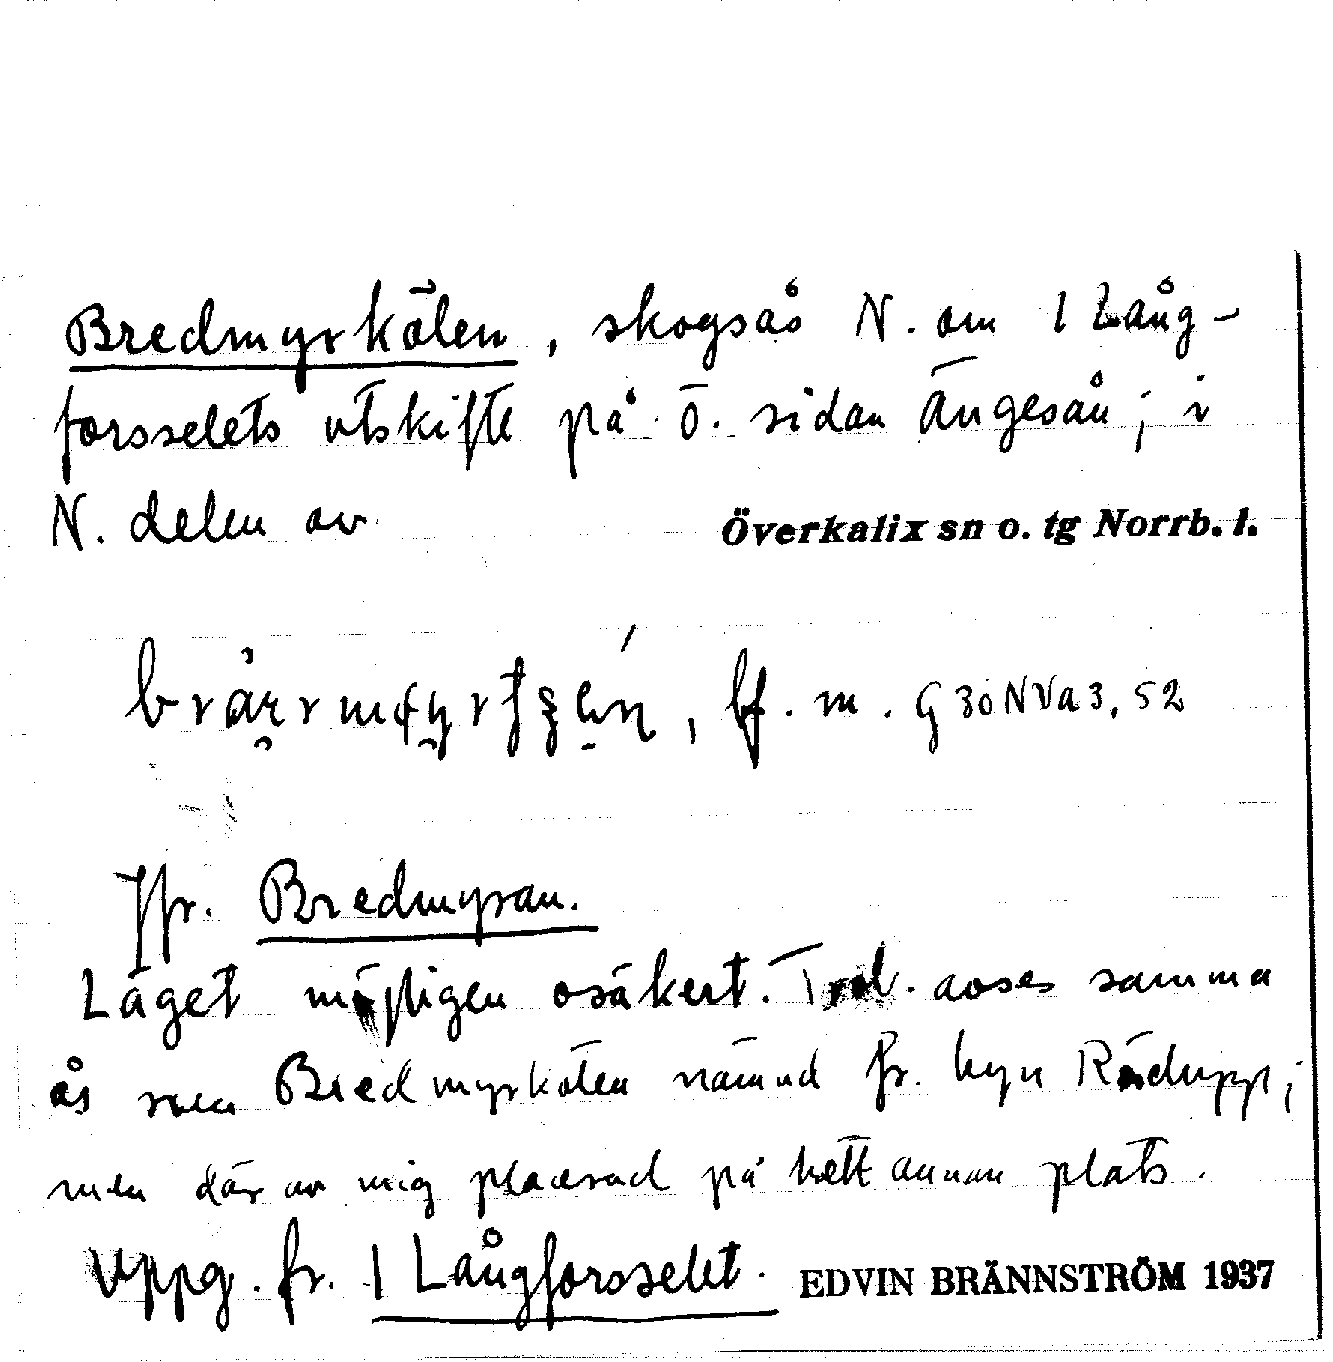 Bredmyrkölen, skogsås N. om 1 Lång-
forsselets utskifte på Ö. sidan Ängesån; i
N. delen av Överkalix sn o. tg Norrb. l.
bf. m. G 30 N V a 3, 52
Jfr. Bredmyran.
Läget möjligen osäkert. Trol. avses samma
ås som Bredmyrkölen nämnd fr. byn Rödupp;
men där av mig placerad på helt annan plats.
Uppg. fr. 1 Långforsselet. EDVIN BRÄNNSTRÖM 1937